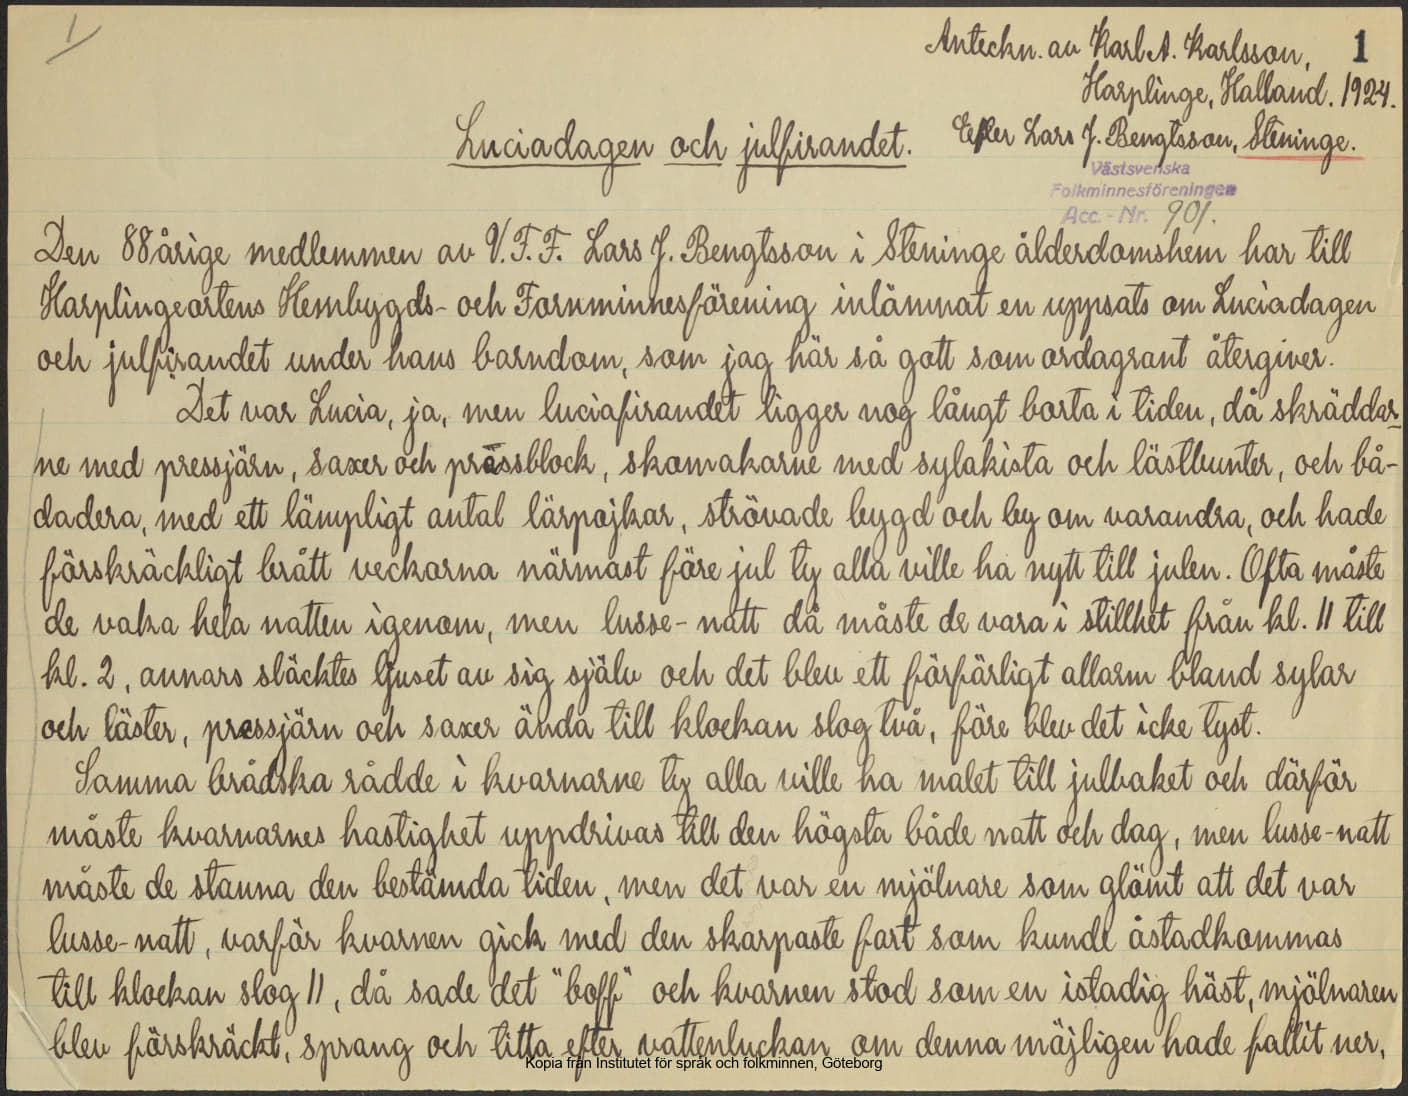 1
Anteckn. av Karl A. Karlsson, 1
Harplinge, Halland. 1924.
Luciadagen och julfirandet. Efter Lars J. Bengtsson, Steninge.
Västsvenska
Folkminnesföreningen
Acc.-Nr. 901.
Den 88årige medlemmen av V.F.F. Lars J. Bengtsson i Steninge ålderdomshem har till
Harplingeortens Hembygds- och Fornminnesförening inlämnat en uppsats om Luciadagen
och julfirandet under hans barndom, som jag här så gott som ordagrant återgiver.
Det var Lucia, ja, men luciafirandet ligger nog långt borta i tiden, då skräddar-
ne med pressjärn, saxer och pressblock, skomakarne med sylakista och lästbunter, och bå-
dadera, med ett lämpligt antal lärpojkar, strövade bygd och by om varandra, och hade
förskräckligt brått veckorna närmast före jul ty alla ville ha nytt till julen. Ofta måste
de vaka hela natten igenom, men lusse-natt då måste de vara i stillhet från kl. 11 till
kl. 2, annars släcktes ljuset av sig själv och det blev ett förfärligt allarm bland sylar
och läster, pressjärn och saxer ända till klockan slog två, före blev det icke tyst.
Samma brådska rådde i kvarnarne ty alla ville ha malet till julbaket och därför
måste kvarnarnes hastighet uppdrivas till den högsta både natt och dag, men lusse-natt
måste de stanna den bestämda tiden, men det var en mjölnare som glömt att det var
lusse-natt, varför kvarnen gick med den skarpaste fart som kunde åstadkommas
till klockan slog 11, då sade det "boff" och kvarnen stod som en istadig häst, mjölnaren
blev förskräckt, sprang och titta efter vattenluckan om denna möjligen hade fallit ner,
Kopia från Institutet för språk och folkminnen, Göteborg